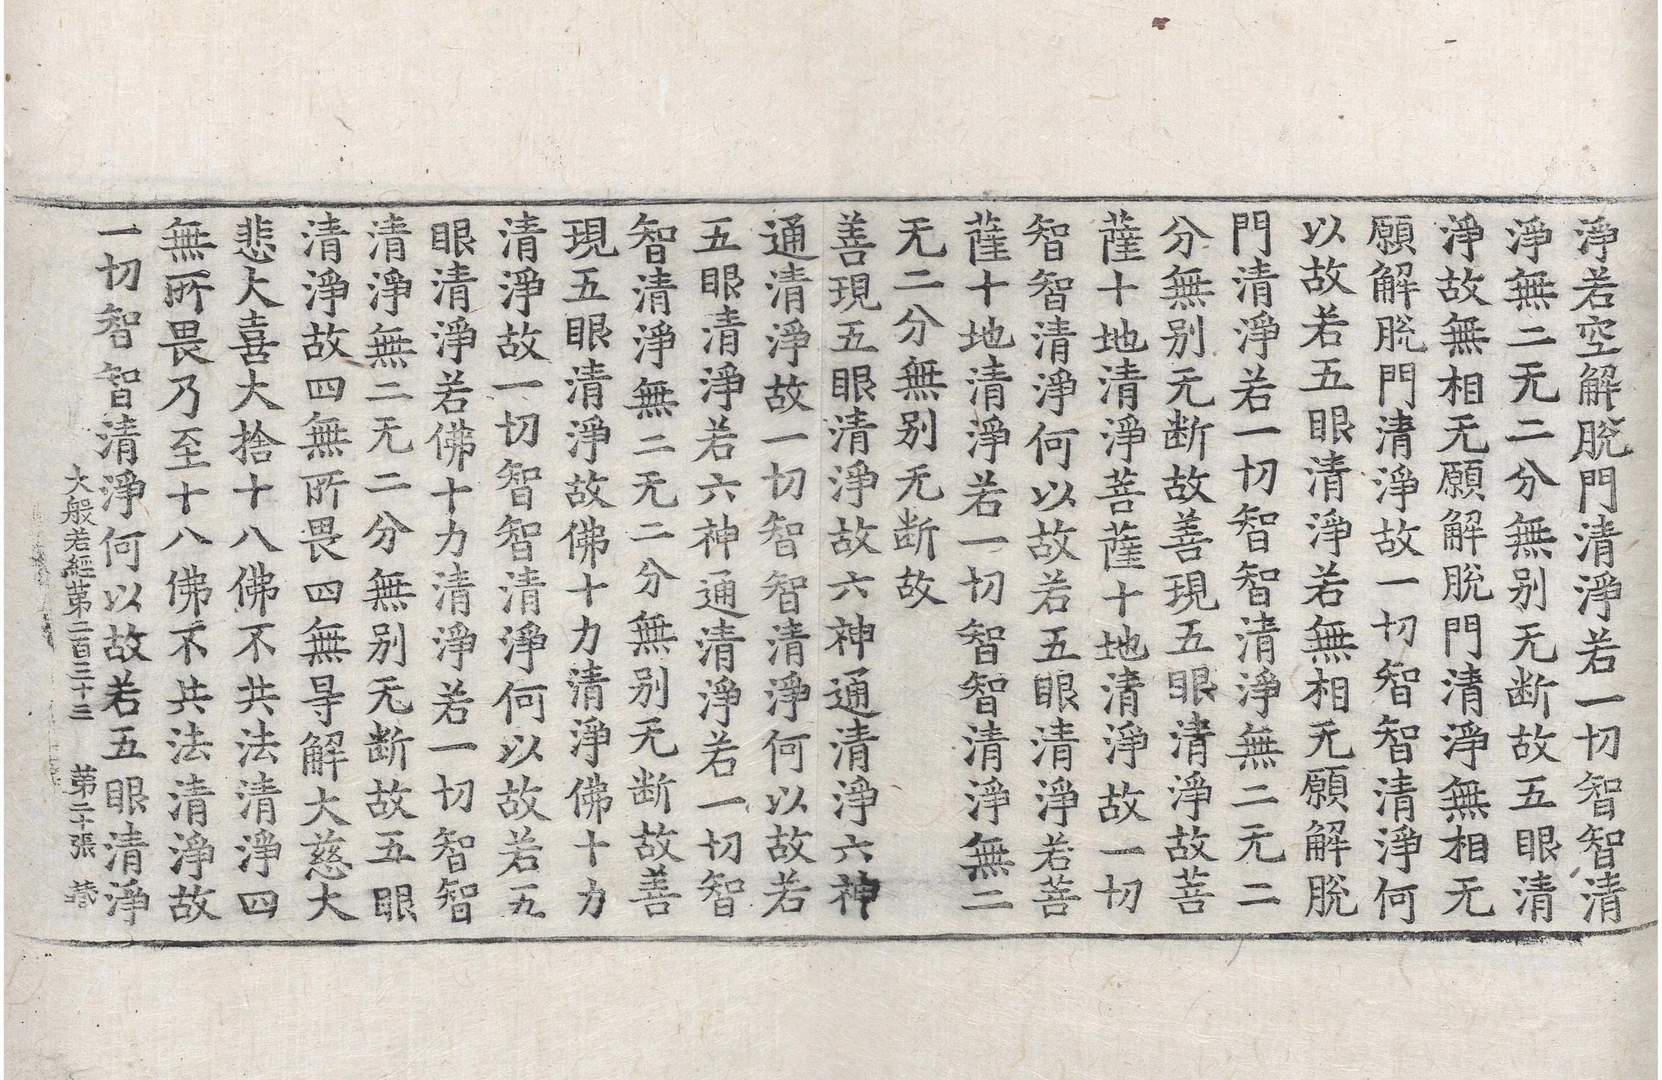 淨若空解脫門清淨若一切智智清
淨無二无二分無别无断故五眼清
淨故無相无願解脫門清淨無相无
願解脫門清淨故一切智智清淨何
以故若五眼清淨若無相无願解脫
門清淨若一切智智清淨無二无二
分無别无断故善現五眼清淨故菩
薩十地清淨菩薩十地清淨故一切
智智清淨何以故若五眼清淨若菩
薩十地清淨若一切智智清淨無二
无二分無别无断故
善現五眼清淨故六神通清淨六神
通清淨故一切智智清淨何以故若
五眼清淨若六神通清淨若一切智
智清淨無二无二分無别无断故善
現五眼清淨故佛十力清淨佛十力
清淨故一切智智清淨何以故若五
眼清淨若佛十力清淨若一切智智
清淨無二无二分無别无断故五眼
清淨故四無所畏四無㝵解大慈大
悲大喜大捨十八佛不共法清淨四
無所畏乃至十八佛不共法清淨故
一切智智清淨何以故若五眼清淨
大般若經苐二百三十三 苐二十張